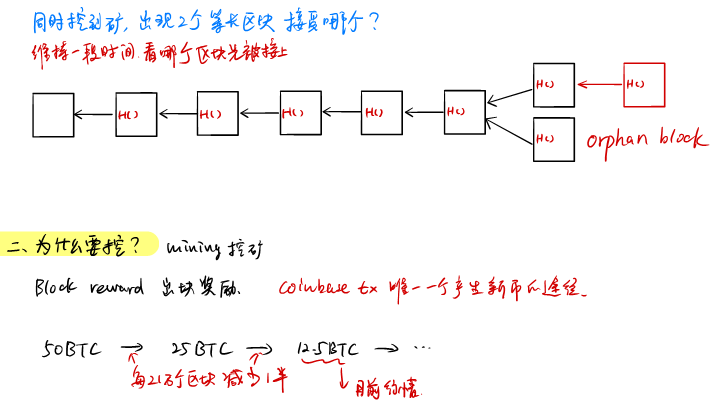 同时挖到矿,出现2个等长区块 接受哪个?
维持一段时间.看哪个区块先被接上
H() H() H() H() H() H() H()
H() orphan block
二、为什么要挖? mining 挖矿
Block reward 出块奖励. coinbase tx 唯一一个产生新币的途径.
50BTC → 25BTC → 12.5BTC → ...
每21万个区块 减少1半
目前行情